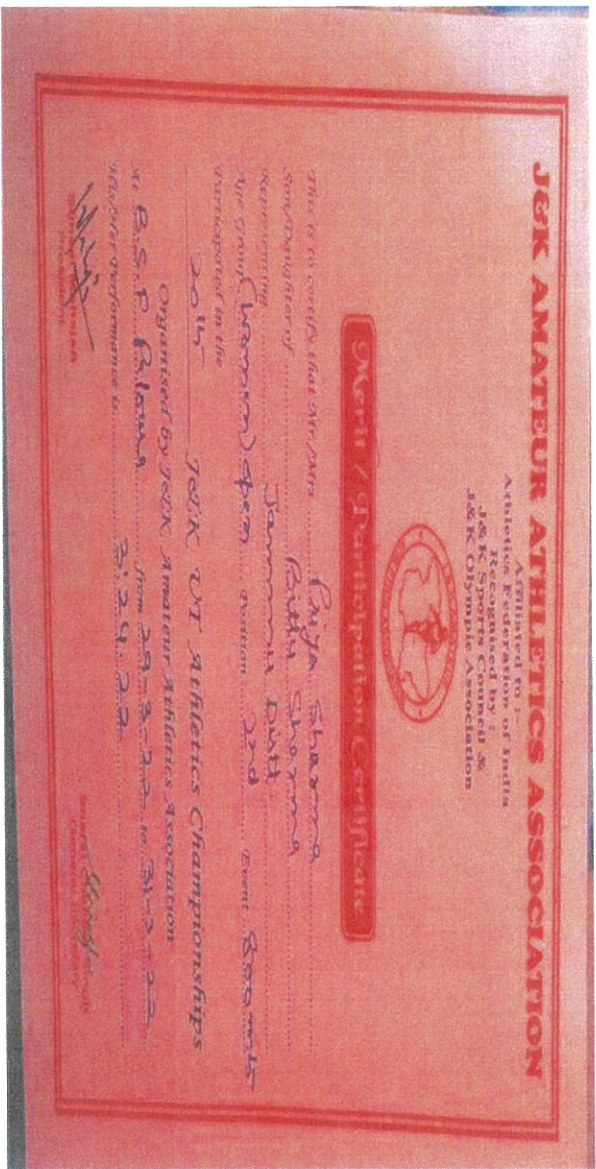 J&K AMATEUR ATHLETICS ASSOCIATION
Affiliated to :-
Athletics Federation of India
Recognised by :
J&K Sports Council &
J&K Olympic Association
Merit / Participation Certificate
This is to certify that Mr./Mrs. Priya Sharma
Son/Daughter of Bittu Sharma
Representing Jammu Distt
Age Group (Women) Open Position 2nd Event 800 mts
Participated in the
20th J&K UT Athletics Championships
Organised by J&K Amateur Athletics Association
At B.S.P from 29-3-22 to 31-3-22
His/Her Performance is 3'24.22
President